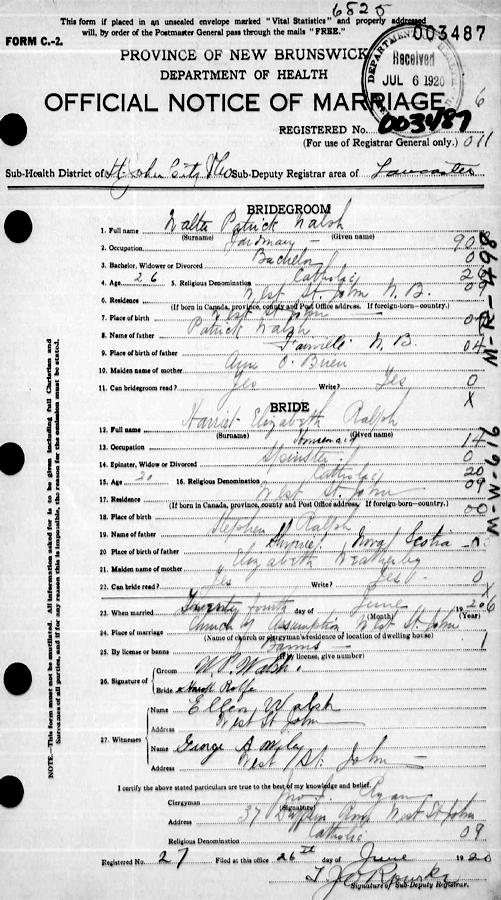 6525
This form if placed in an unsealed envelope marked "Vital Statistics" and properly addressed
will, by order of the Postmaster General pass through the mails "FREE."
FORM C.-2.
003487
PROVINCE OF NEW BRUNSWICK
DEPARTMENT OF HEALTH
DEPARTMENT OF HEALTH
Received
JUL 6 1920
OFFICIAL NOTICE OF MARRIAGE
6
REGISTERED No. 003487
(For use of Registrar General only.) 011
Sub-Health District of St. John City Sub-Deputy Registrar area of Lancaster
BRIDEGROOM
1. Full name Walter Patrick Walsh
(Surname) (Given name)
2. Occupation 
3. Bachelor, Widower or Divorced Bachelor 0
4. Age 26 5. Religious Denomination Catholic
6. Residence West St. John N.B. 09
(If born in Canada, province, county and Post Office address. If foreign-born—country.)
7. Place of birth West St. John
8. Name of father Patrick Walsh
9. Place of birth of father N.B. 04
10. Maiden name of mother Ann O'Brien
11. Can bridegroom read? Yes Write? Yes 0
X
BRIDE
12. Full name Harriet Elizabeth Ralph
(Surname) (Given name)
13. Occupation 14
14. Spinster, Widow or Divorced Spinster 0
15. Age 20 16. Religious Denomination Catholic 20
17. Residence West St. John 09
(If born in Canada, province, county and Post Office address. If foreign-born—country.)
18. Place of birth 00
19. Name of father Stephen Ralph
20. Place of birth of father Nova Scotia
21. Maiden name of mother Elizabeth Weatherby
22. Can bride read? Yes Write? Yes 0
X
23. When married Twenty fourth day of June 1920 6
(Month)
24. Place of marriage Church of Assumption West St. John
(Name of church or clergyman's residence of location of dwelling house)
25. By license or banns Banns 1
(If by license, give number)
26. Signature of Groom W. P. Walsh
Bride
27. Witnesses
Name Ellen Walsh
Address West St John
Name George A.
Address West St. John
I certify the above stated particulars are true to the best of my knowledge and belief.
Clergyman J. Ryan
(Signature)
Address 37 Dufferin Row West St John
Religious Denomination Catholic 09
Registered No. 27 Filed at this office 26th day of June 1920
Signature of Sub-Deputy Registrar.
NOTE.—This form must not be mutilated. All information asked for is to be given including full Christian and
Surnames of all parties, and if for any reason the information is impossible, the reason for the omission must be stated.